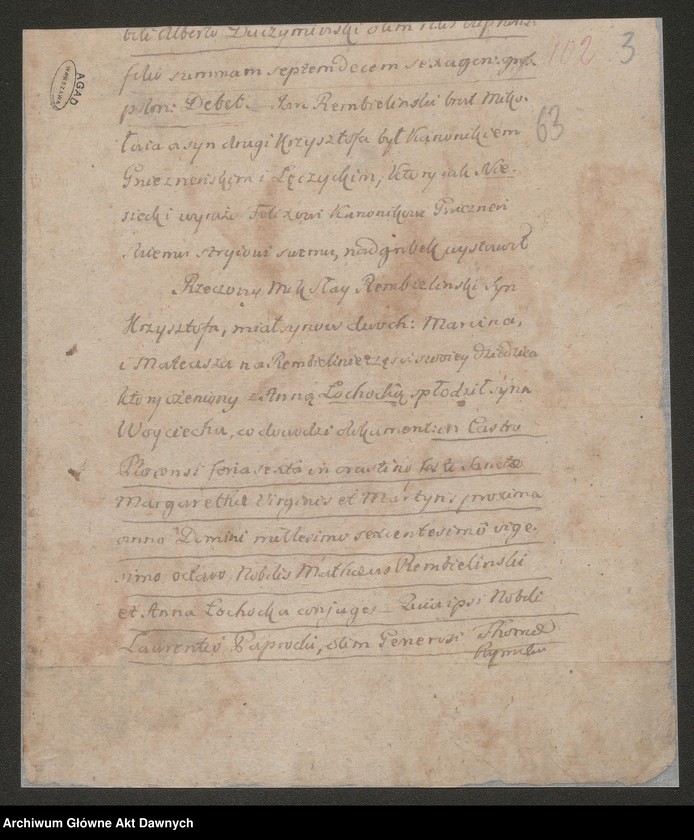 bili Alberto Duczymiński olim
filio summam septemdecem sexagen: 102 3
plon: Debet. Jan Rembielinski brat Miko. 63
łaia a syn drugi Krzysztofa był Kanonikiem
Gnieznenskym i Łęczyckim, ktory iak Nie.
siecki wyraża Felixowi Kanonikowi Gnieznen
skiemu stryiowi swemu, nadgrobek wystawił
Rzeczony Mikołay Rembielinski Syn
Krzysztofa, miał synow dwoch: Marcina,
i Mateusza na Rembielinie części swoiey dziedzica
ktory ożeniony z Anną Łochocką spłodził syna
Woyciecha, co dowodzi dokument: in Castro
Plocensi feria sexta in crastino festi Sanctæ
Margarethæ Virginis et Martyris proxima
anno Domini millesimo sexcentesimo vige.
simo octavo, Nobilis Mathæus Rembielinski
et Anna Łochocka conjuges Quia ipsi Nobili
Laurentio Paprocki, olim Generosi Thomæ
AGAD
WARSZAWA
Archiwum Główne Akt Dawnych